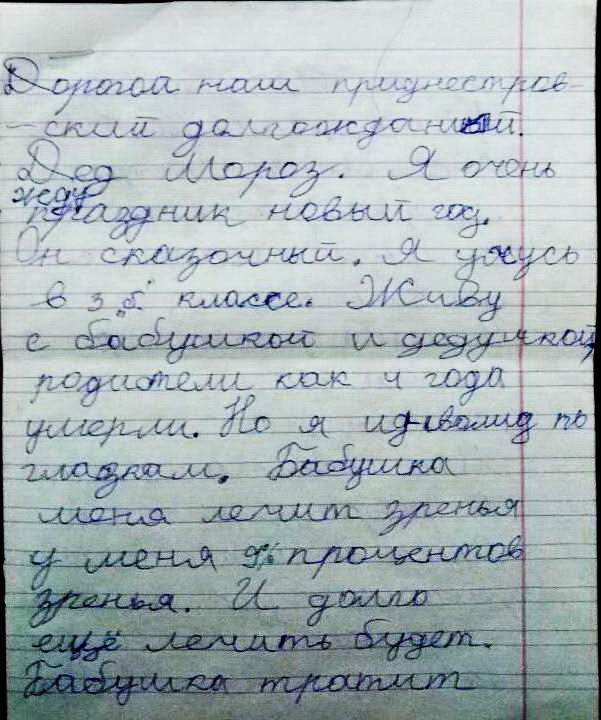 Дорогой наш приднестров-
-ский долгожданный.
Дед Мороз. Я очень
жду
праздник новый год.
Он сказочный. Я учусь
в 3 "б" классе. Живу
с бабушкой и дедушкой,
родители как 4 года
умерли. Но я инвалид по
глазкам. Бабушка
меня лечит зренья
у меня процентов
зренья. И долго
ещё лечить будет.
Бабушка тратит